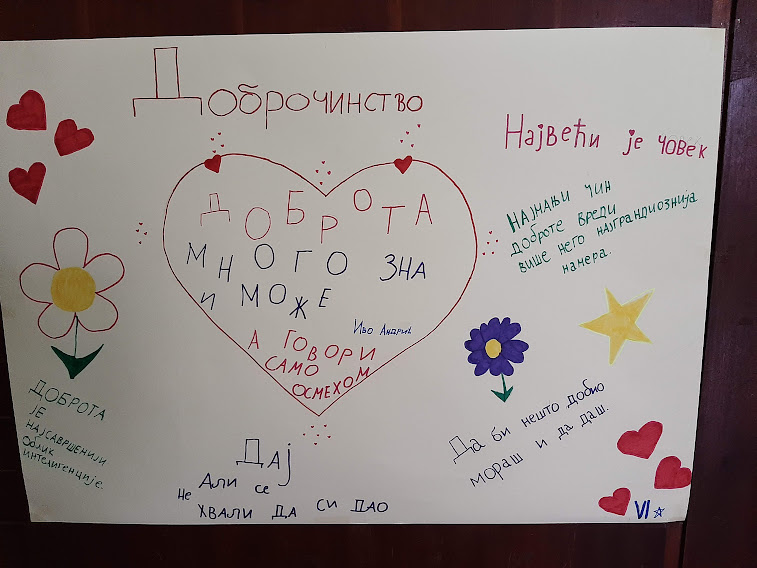 Доброчинство
Највећи је човек
ДОБРОТА
МНОГО ЗНА
И МОЖЕ
Иво Андрић
А ГОВОРИ
САМО
ОСМЕХОМ
НАЈМАЊИ ЧИН
ДОБРОТЕ ВРЕДИ
ВИШЕ НЕГО НАЈГРАНДИОЗНИЈА
НАМЕРА.
ДОБРОТА
ЈЕ
НАЈСАВРШЕНИЈИ
ОБЛИК
ИНТЕЛИГЕНЦИЈЕ.
ДАЈ
АЛИ СЕ
НЕ
ХВАЛИ ДА СИ ДАО
Да би нешто добио
мораш и да даш.
VI